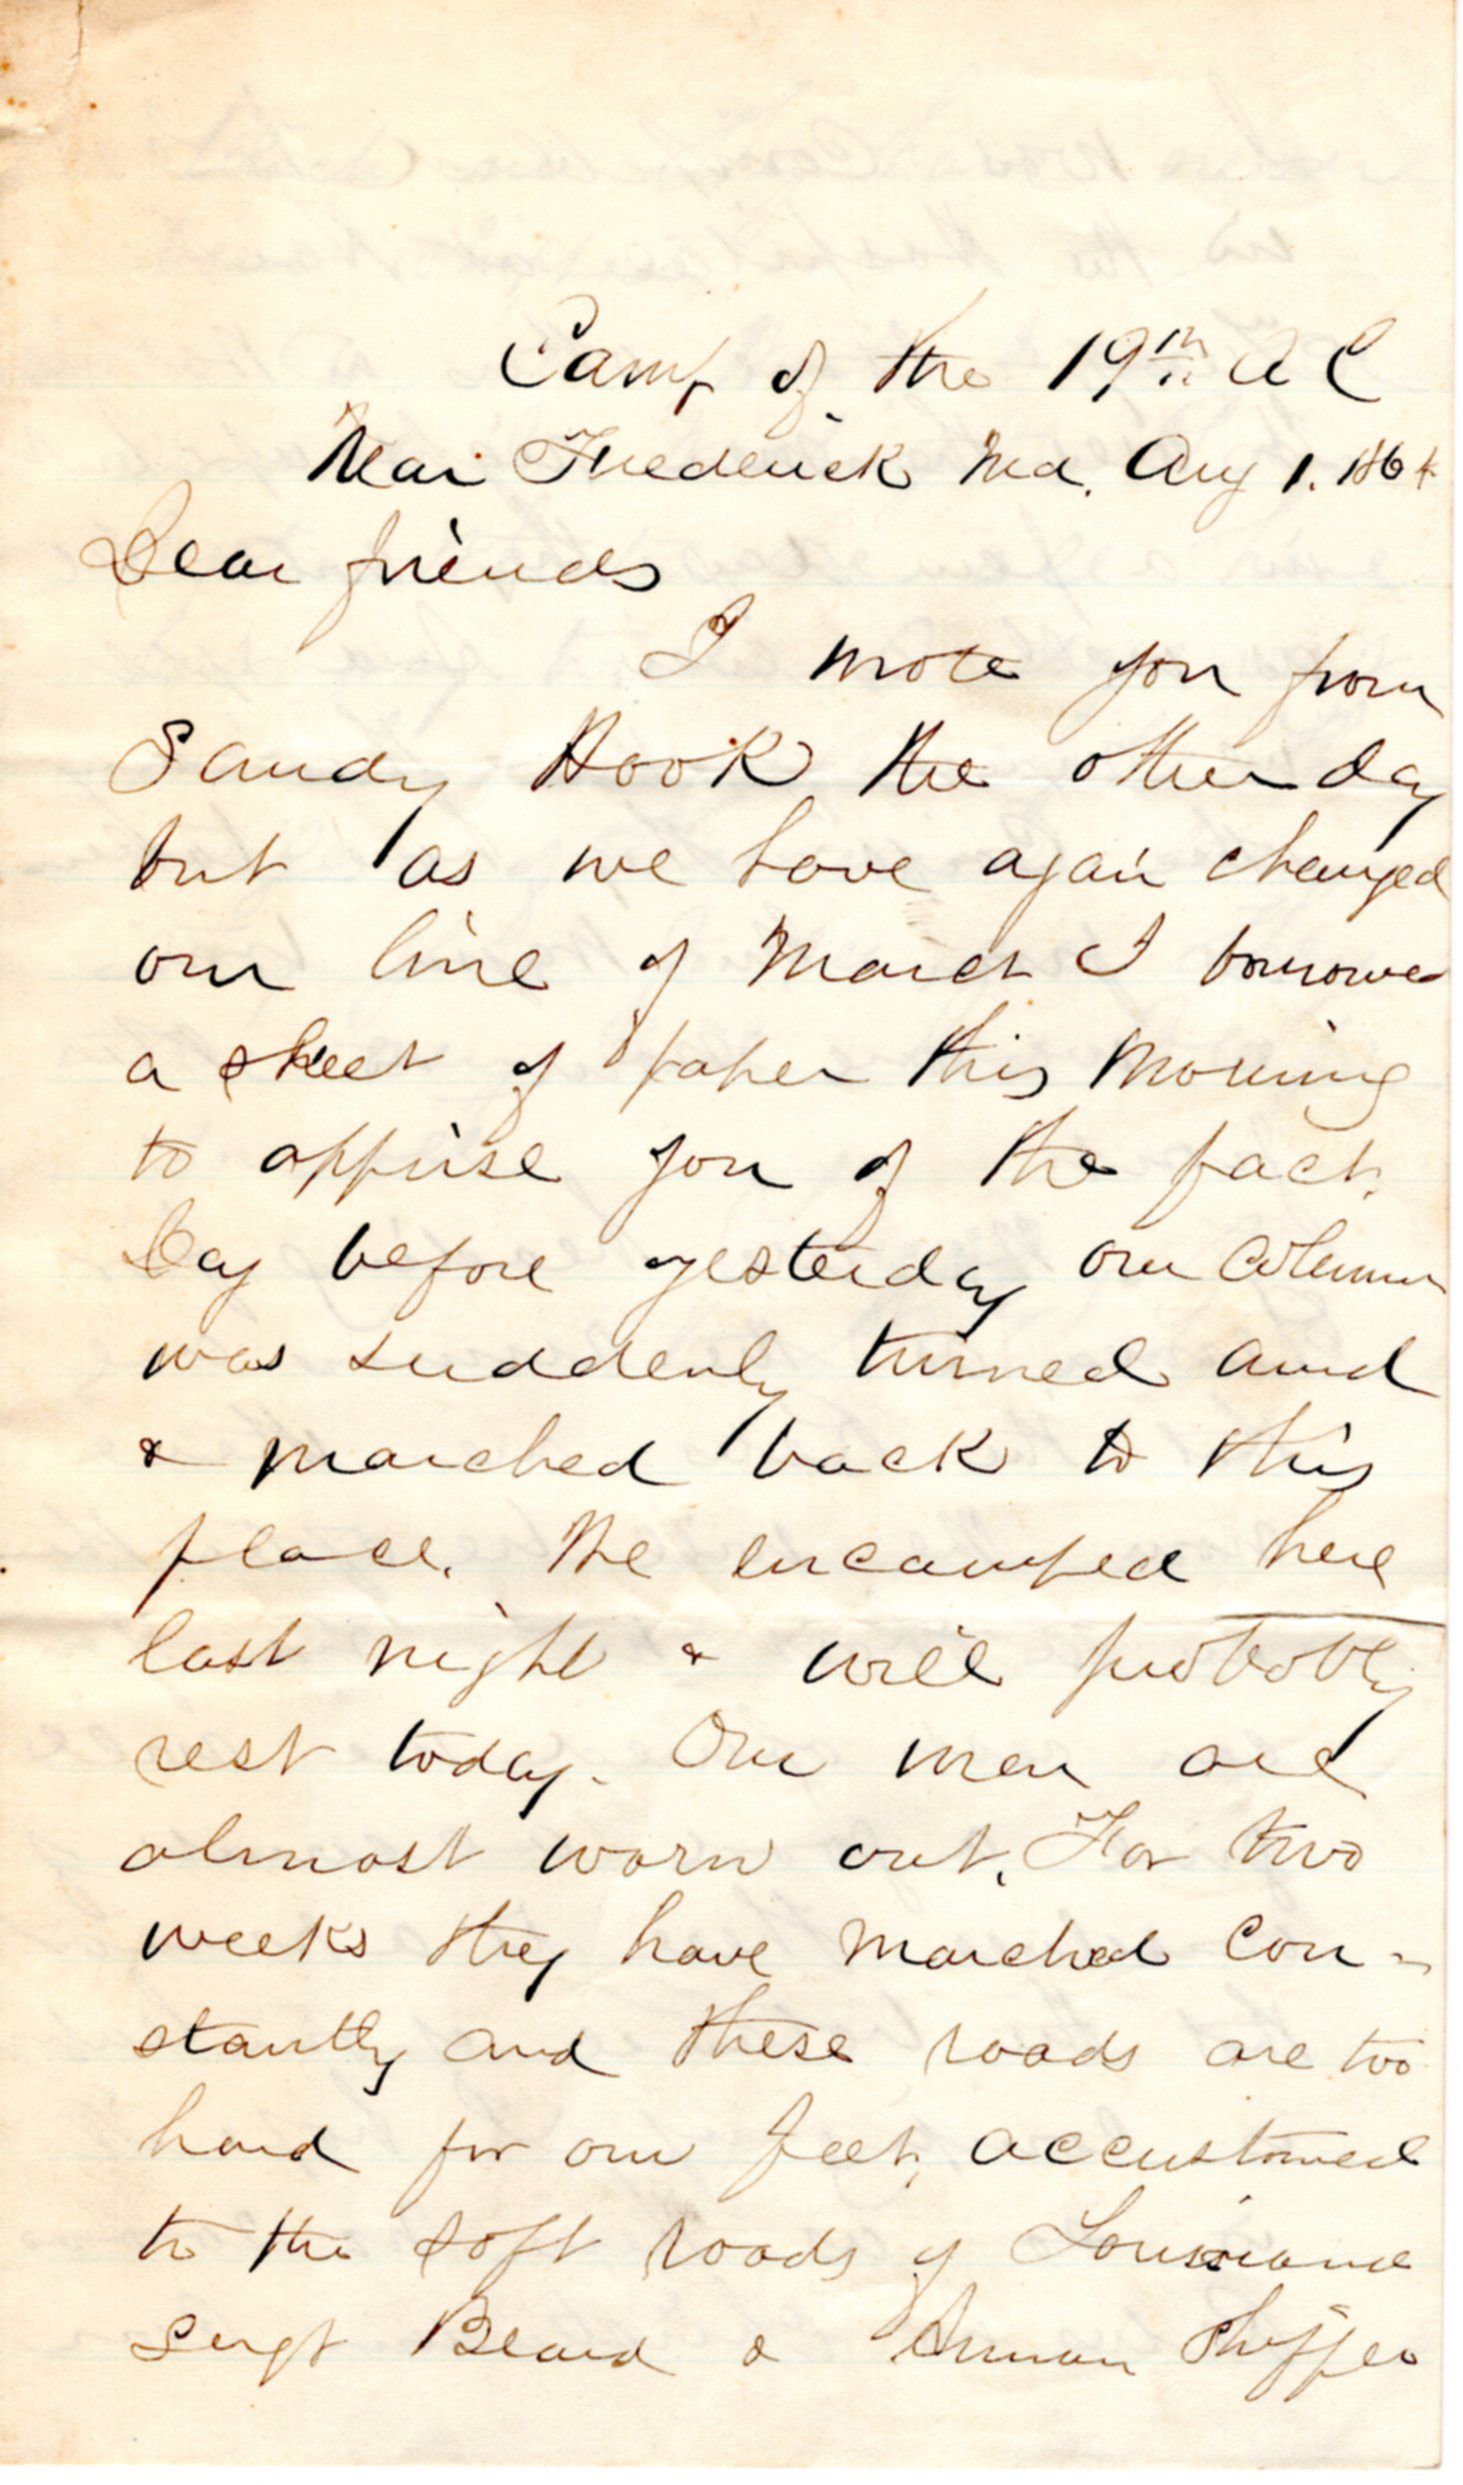 Camp of the 19th A C
Near Frederick Md. Aug 1. 1864
Dear friends
I wrote you from
Sandy Hook the other day
but as we have again changed
our line of March I borrowed
a sheet of paper this morning
to apprise you of the fact.
Day before yesterday our column
was suddenly turned
& marched back to this
place. We encamped here
last night & will probably
rest today. Our men are
almost worn out. For two
weeks they have marched con-
stantly and these roads are too
hard for our feet, accustomed
to the soft roads of Louisiana
Sergt Beard &